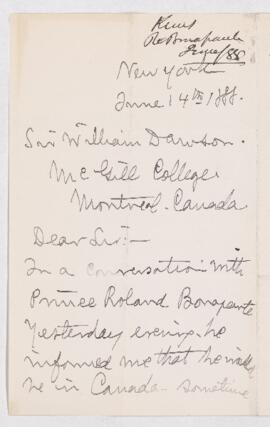 Kunz
Re Bonaparte
June/88
New York
June 14th 1888.
Sir William Dawson.
McGill College.
Montreal. Canada
Dear Sir:—
In a conversation with
Prince Roland Bonaparte
Yesterday evening, he
informed me that he would
be in Canada sometime